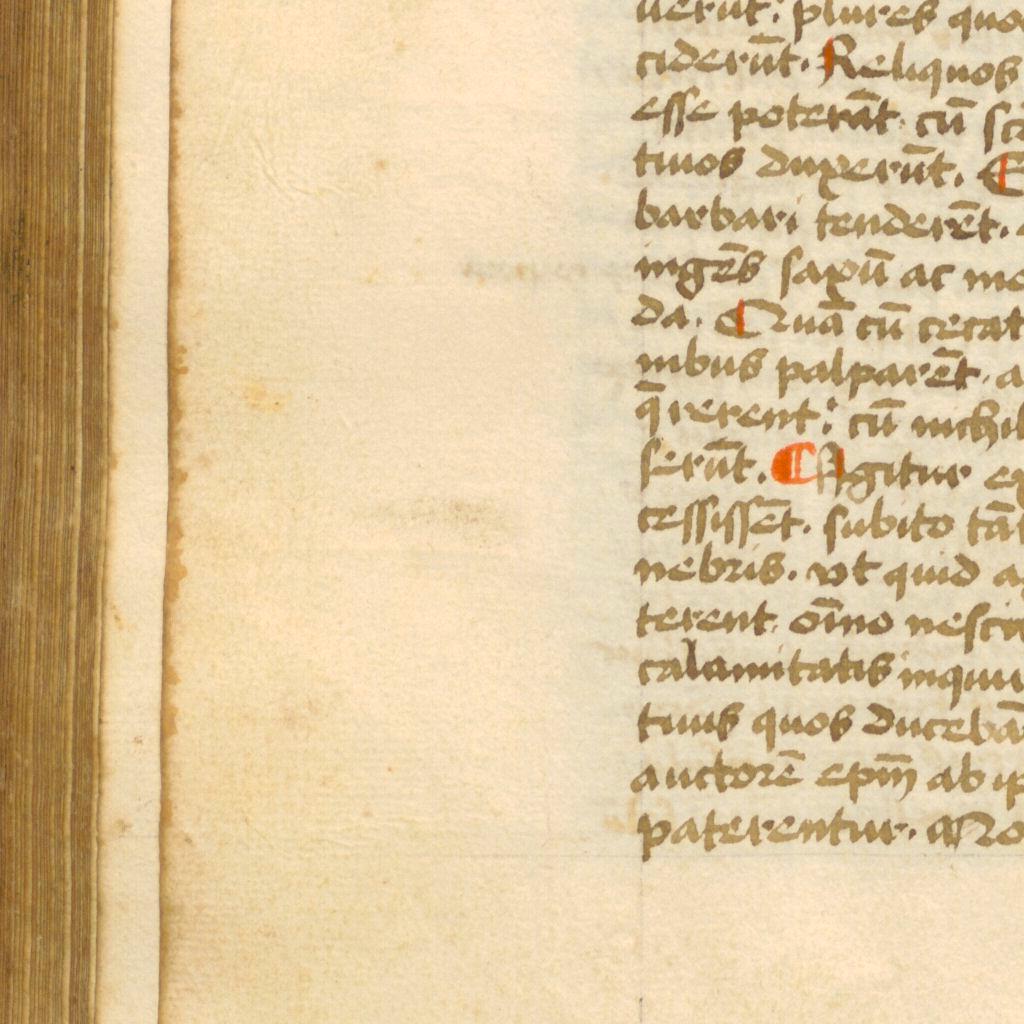 uerūt: plures quo
ciderūt. Reliquos
esse poterāt. cū
tiuos duxerūt.
barbari tenderēt.
ingēs saxū ac mo
da. Quā cū cecat
nibus palparēt. a
q̄rerent: cū nichil
serūt. Igitur ex
cessissēt. subito tā
nebris. vt quid a
terent. oīno nesci
calamitatis inqui
tiuis quos ducebā
auctorē ep̄m ab ip
paterentur. Mo